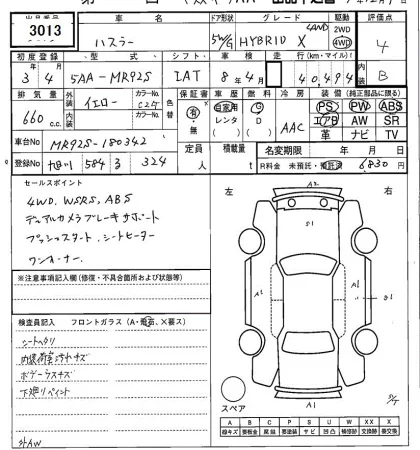 出品番号 車名 ドア形状 グレード 駆動 評価点
3013 ハスラー 5W/G HYBRID X 4WD 2WD 4WD 4
初度登録 型式 シフト 車検 走行(km・マイル) 内装
3年4月 5AA-MR92S IAT 8年4月 40,494 B
排気量 外装 カラーNo. 色替 保証書 車歴 燃料 冷房 装備(純正部品に限る)
660c.c. イエロー C2S 有・無 自家用 レンタ G D AAC PS PW ABS
内装 カラーNo. エアB AW SR
革 ナビ TV
車台No MR92S-180342 定員 人 積載量 t 名変期限 年 月 日
登録No 584 3 324 R料金 未預託・預託済 6830円
セールスポイント
4WD、WSRS、ABS
デュアルカメラブレーキサポート
プッシュスタート、シートヒーター
ワンオーナー、
※注意事項記入欄(修復・不具合箇所および状態等)
検査員記入 フロントガラス(A・飛石、X要ス)
シートヘタリ
内装荷室汚れキズ
ボデーウスキズ
下廻りペイント
外AW
左 右
A2
S1
A2 A1 S1
A1
スペア
A B C P S U W X XX X
線キズ 要板金 腐蝕 要塗装 サビ 凹凸 補修跡 交換済 要交換